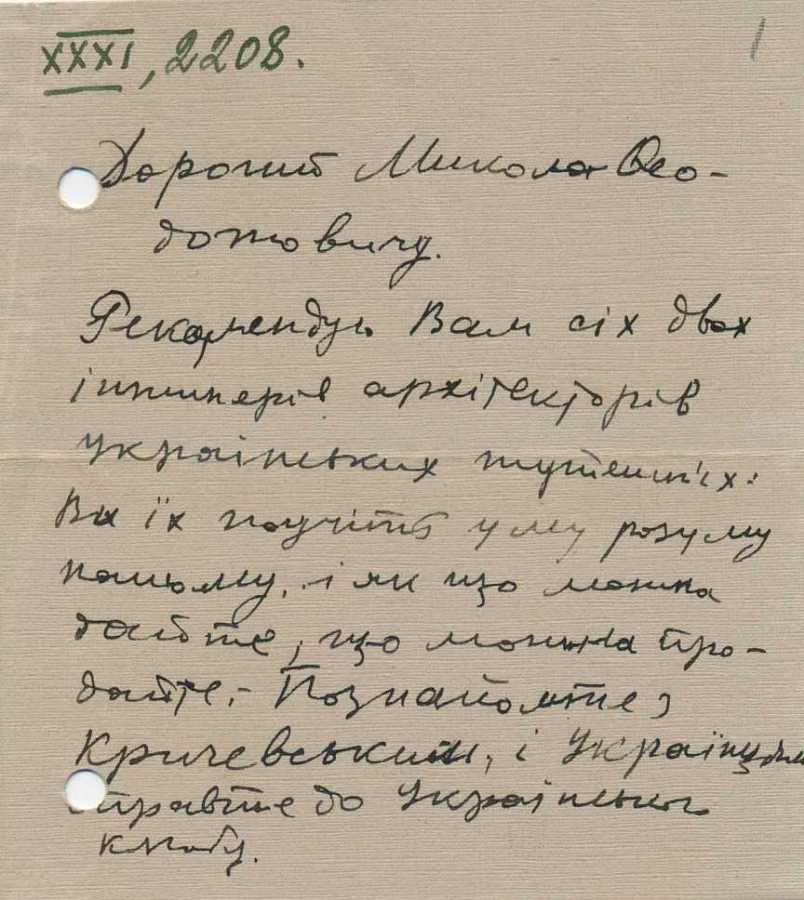 XXXI, 2208.
1
Дорогий Микола Фео-
дотовичу.
Рекомендую Вам сіх двох
інжинерів архітекторів
українських тутешніх:
Ви їх научіть уму розуму
нашому, і як що можна
дайте, що можна про-
дайте,- Познайомте з
Кричевським, і
правте до Українського
клюбу.